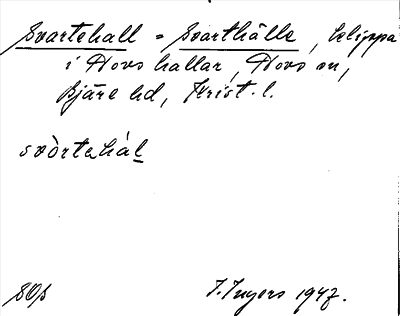 Svartehall = Svarthälle, klippa
i Hovs hallar, Hovs sn,
Bjäre hd, Krist. l.
svὸrtehál
SOβ I. Ingers 1947.